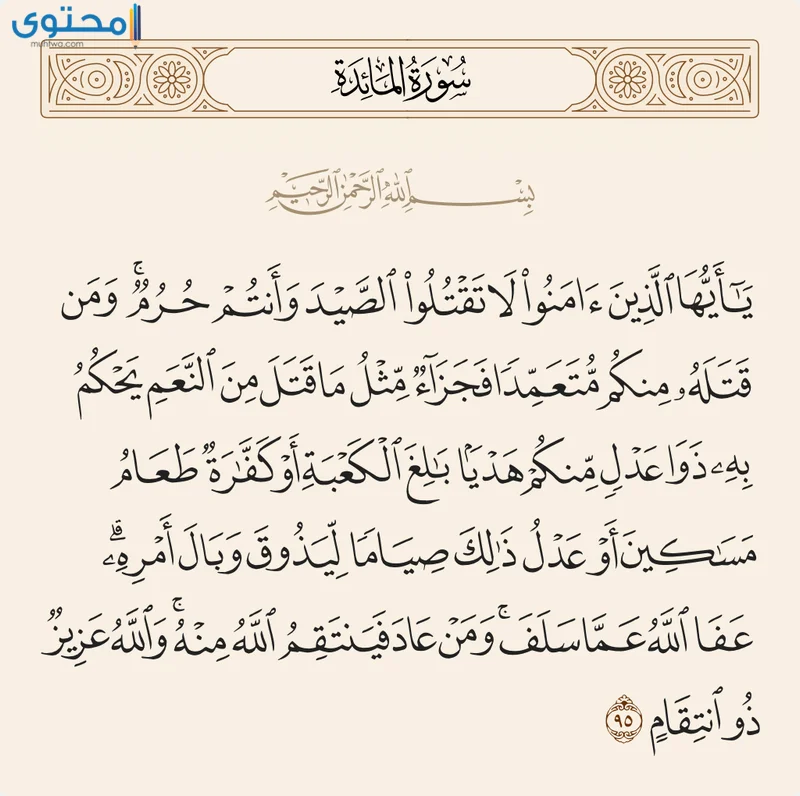 محتوى
muhtwa.com
سُورَةُ المَائِدَةِ
بِسْمِ ٱللَّهِ ٱلرَّحْمَٰنِ ٱلرَّحِيمِ
يَٰٓأَيُّهَا ٱلَّذِينَ ءَامَنُوا۟ لَا تَقْتُلُوا۟ ٱلصَّيْدَ وَأَنتُمْ حُرُمٌۭ ۚ وَمَن
قَتَلَهُۥ مِنكُم مُّتَعَمِّدًۭا فَجَزَآءٌۭ مِّثْلُ مَا قَتَلَ مِنَ ٱلنَّعَمِ يَحْكُمُ
بِهِۦ ذَوَا عَدْلٍۢ مِّنكُمْ هَدْيًۢا بَٰلِغَ ٱلْكَعْبَةِ أَوْ كَفَّٰرَةٌۭ طَعَامُ
مَسَٰكِينَ أَوْ عَدْلُ ذَٰلِكَ صِيَامًۭا لِّيَذُوقَ وَبَالَ أَمْرِهِۦ ۗ
عَفَا ٱللَّهُ عَمَّا سَلَفَ ۚ وَمَنْ عَادَ فَيَنتَقِمُ ٱللَّهُ مِنْهُ ۚ وَٱللَّهُ عَزِيزٌۭ
ذُو ٱنتِقَامٍ ٩٥